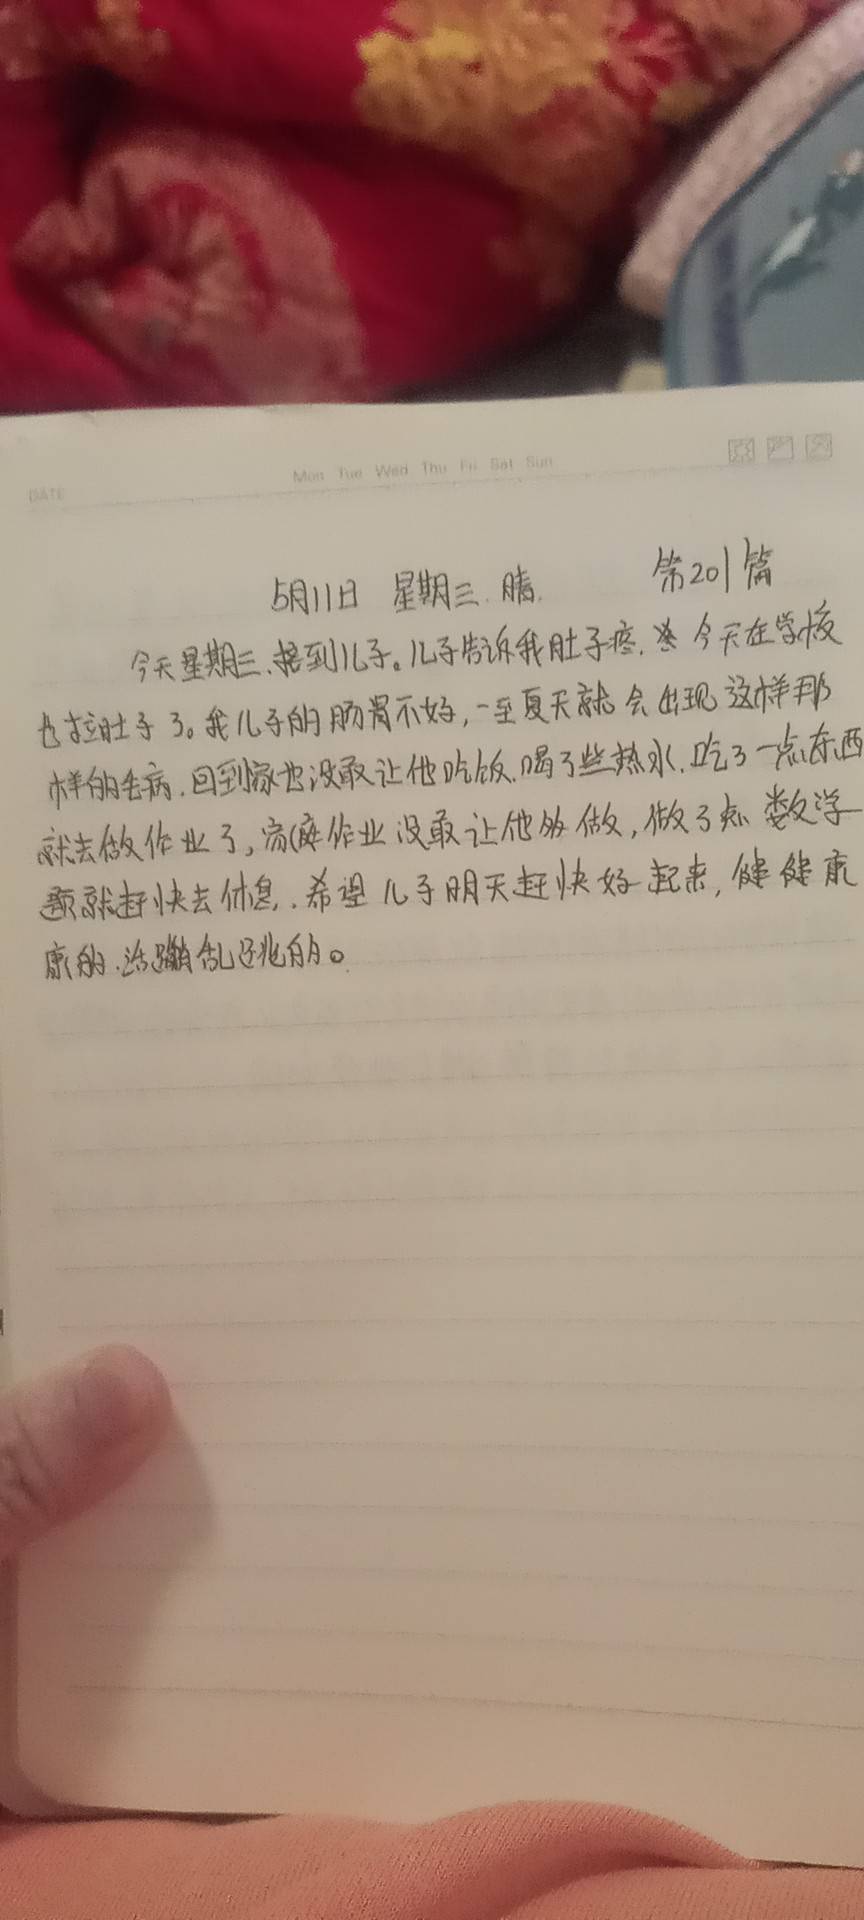 DATE
Mon Tue Wed Thu Fri Sat Sun
5月11日 星期三.晴. 第201篇
今天星期三.接到儿子。儿子告诉我肚子疼.今天在学校
也拉肚子了。我儿子的肠胃不好,一至夏天就会出现这样那
样的毛病.回到家也没敢让他吃饭.喝了些热水.吃了一点东西
就去做作业了,家庭作业没敢让他多做,做了点数学
题就赶快去休息.希望儿子明天赶快好起来,健健康
康的.活蹦乱跳的。